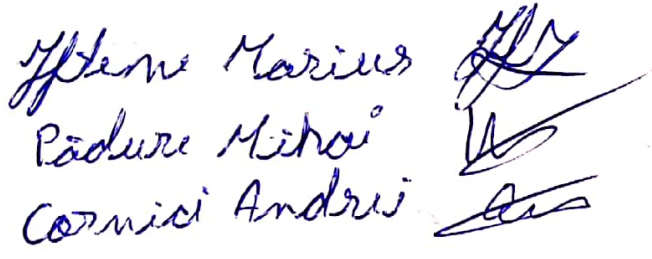 Iftene Marius
Pădure Mihai
Cornici Andrei